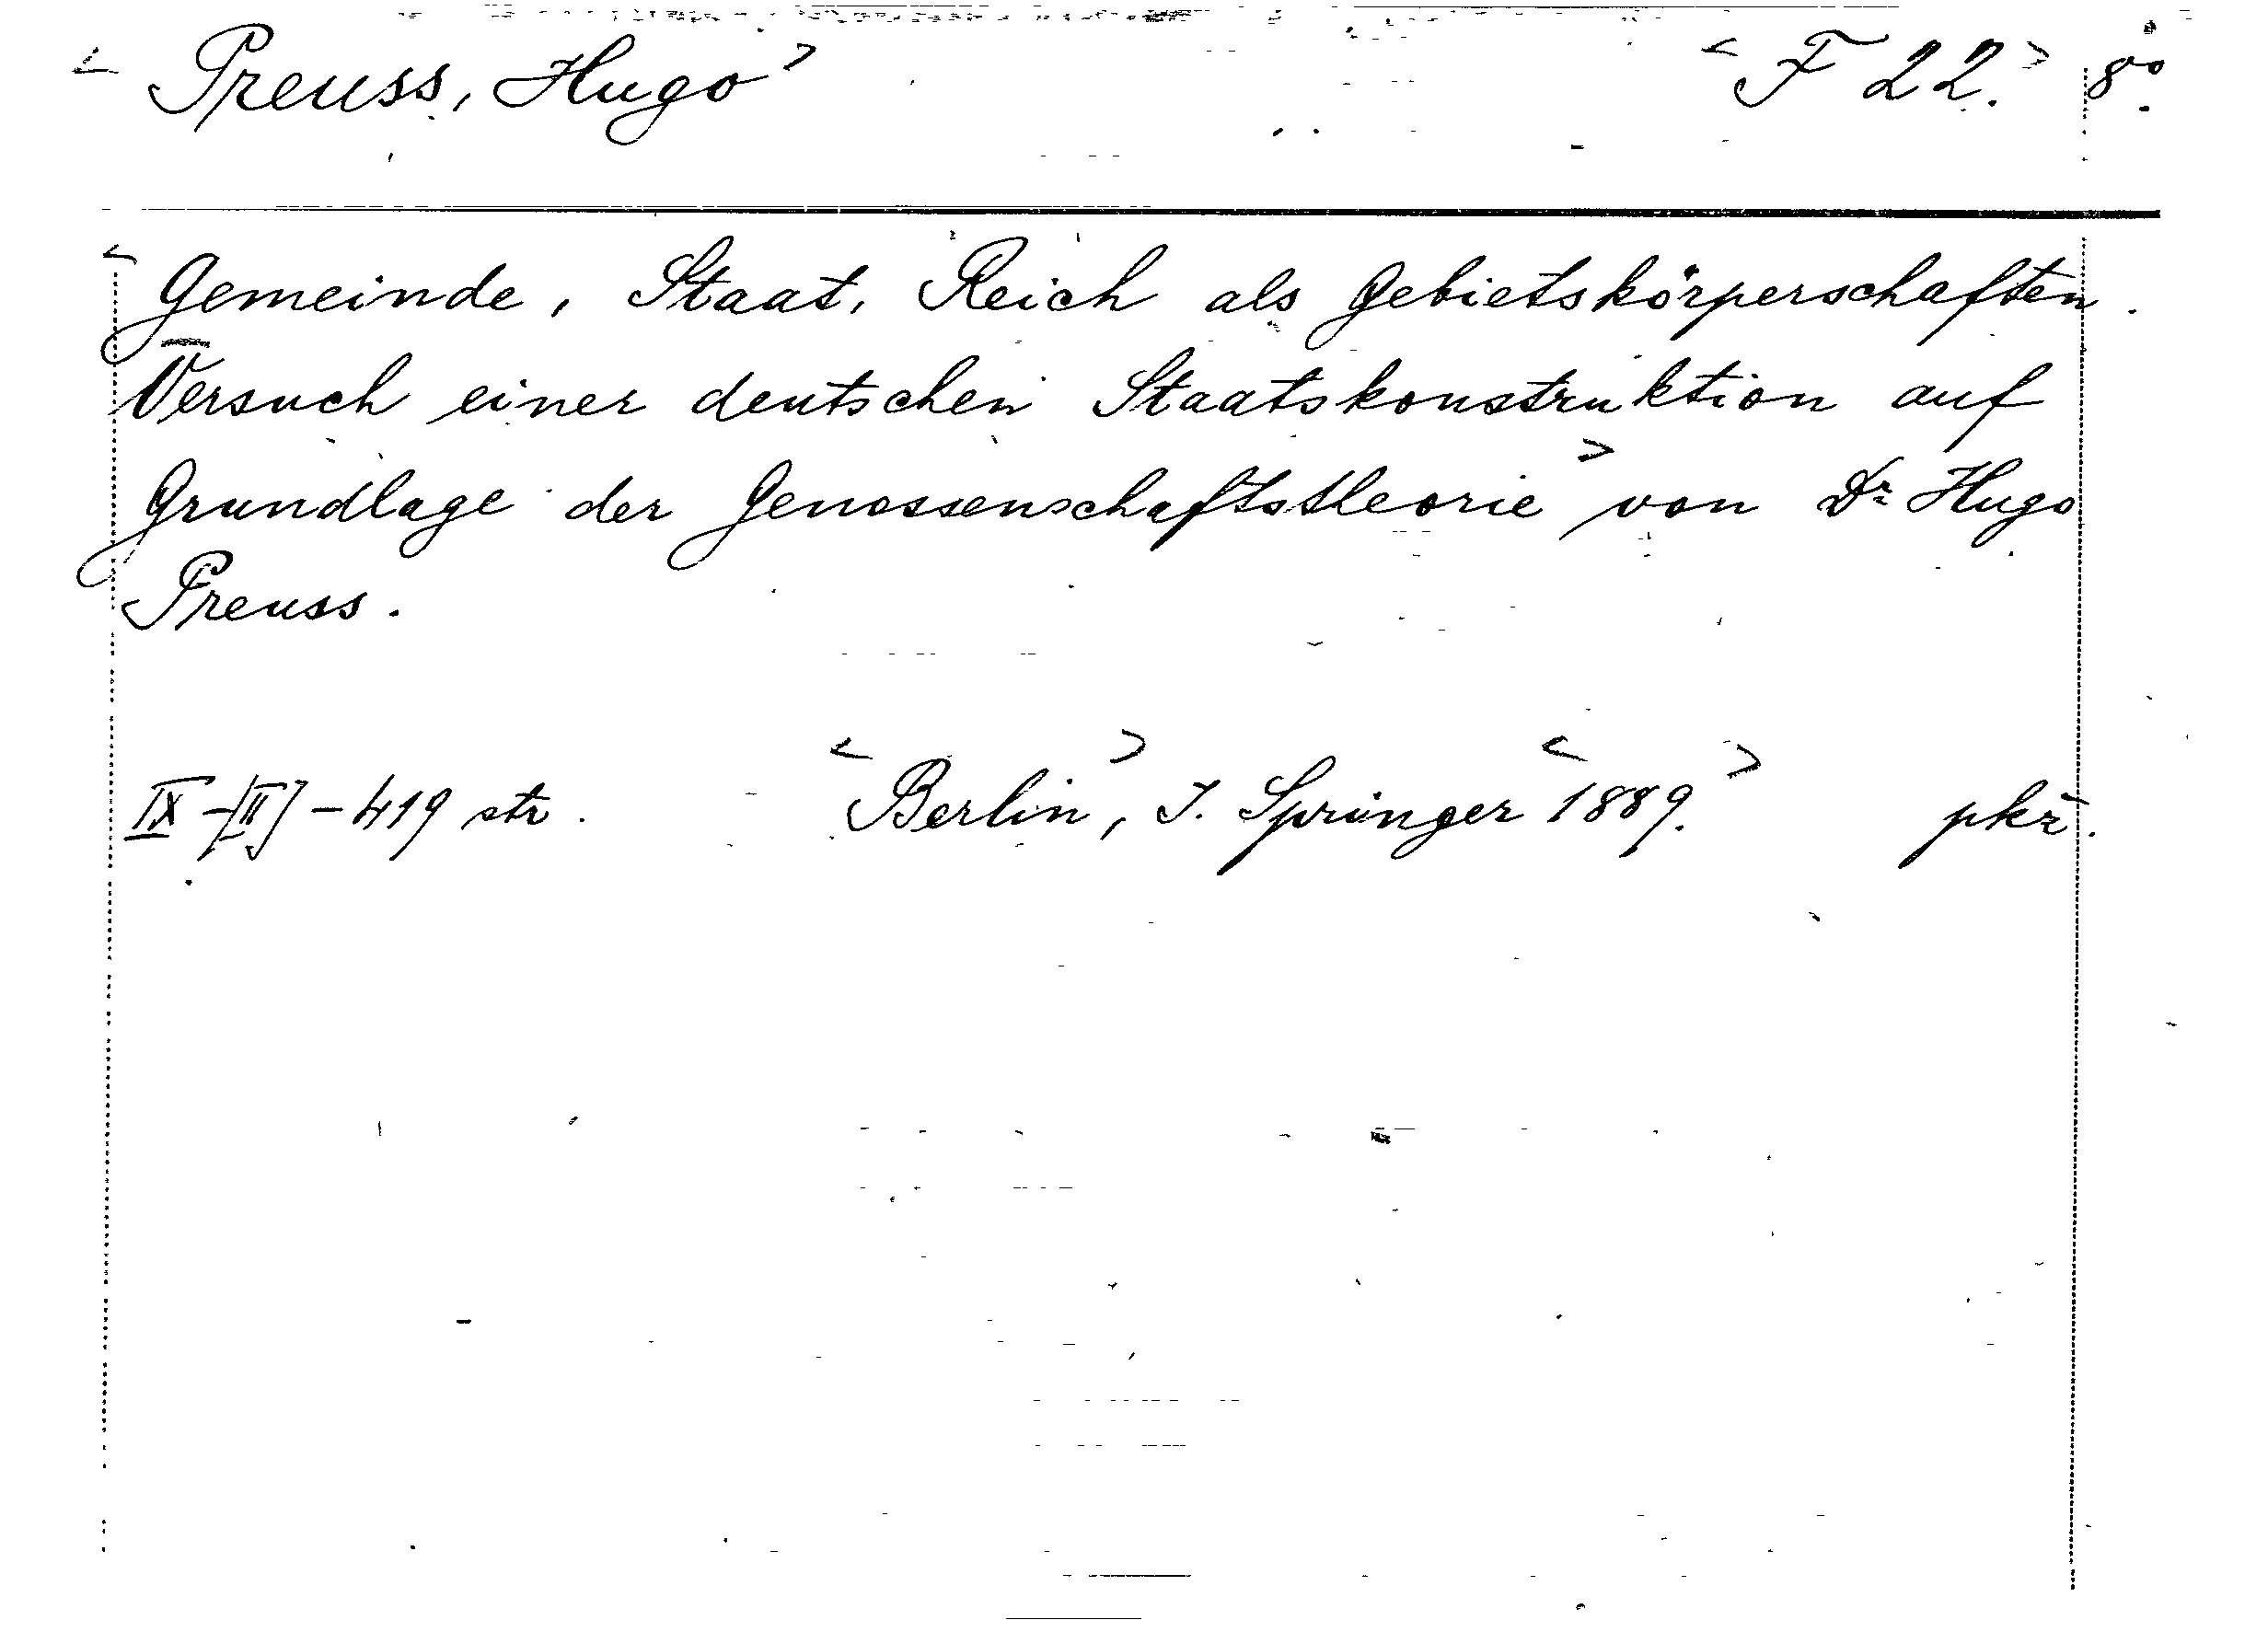 < Preuss, Hugo > < F 22. > 8°.
< Gemeinde, Staat, Reich als Gebietskörperschaften.
Versuch einer deutschen Staatskonstruktion auf
Grundlage der Genossenschaftstheorie > von Dr Hugo
Preuss.
IX-[II]-419 str. < Berlin >, J. Springer < 1889. > pkž.